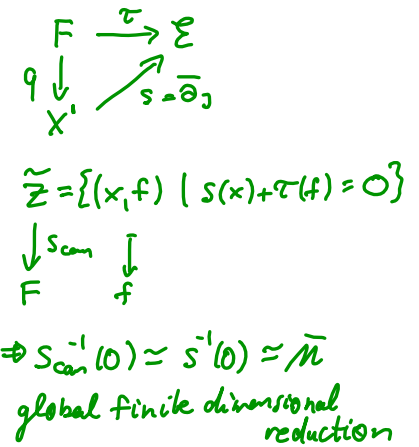 F τ→ ε
q ↓ s = ∂̄_J
X'
Z̃ = {(x,f) | s(x)+τ(f) = 0}
↓ s_can ↓
F f
⇒ s_can⁻¹(0) ≃ s⁻¹(0) ≃ M̄
global finite dimensional
reduction